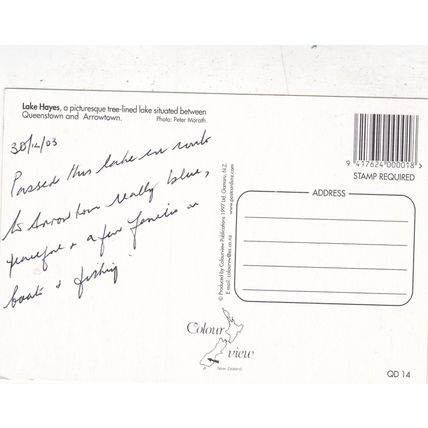 Lake Hayes, a picturesque tree-lined lake situated between
Queenstown and Arrowtown. Photo: Peter Morath.
30/12/03
Passed this lake en route
to Arrowtown really blue,
peaceful & a few families in
boats & fishing.
9 417624 000018 >
STAMP REQUIRED
ADDRESS
© Produced by Colourview Publications 1997 Ltd, Oamaru, N.Z.
www.postcardsnz.com
E mail: colourview@es.co.nz
Colour
view
New Zealand
QD 14